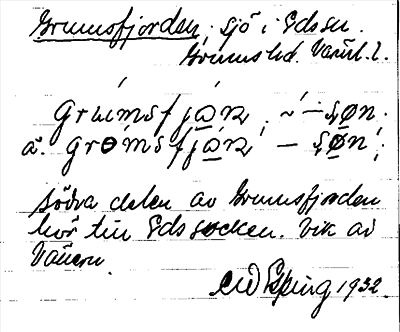 Grumsfjorden, sjö i Eds sn.
Grums hd. Värml. l.
grumsfjọn, ~ – sǿn.
a. grømsfjọn, – sǿn,
södra delen av Grumsfjorden
hör till Eds socken. Vik av
Vänern.
1932.